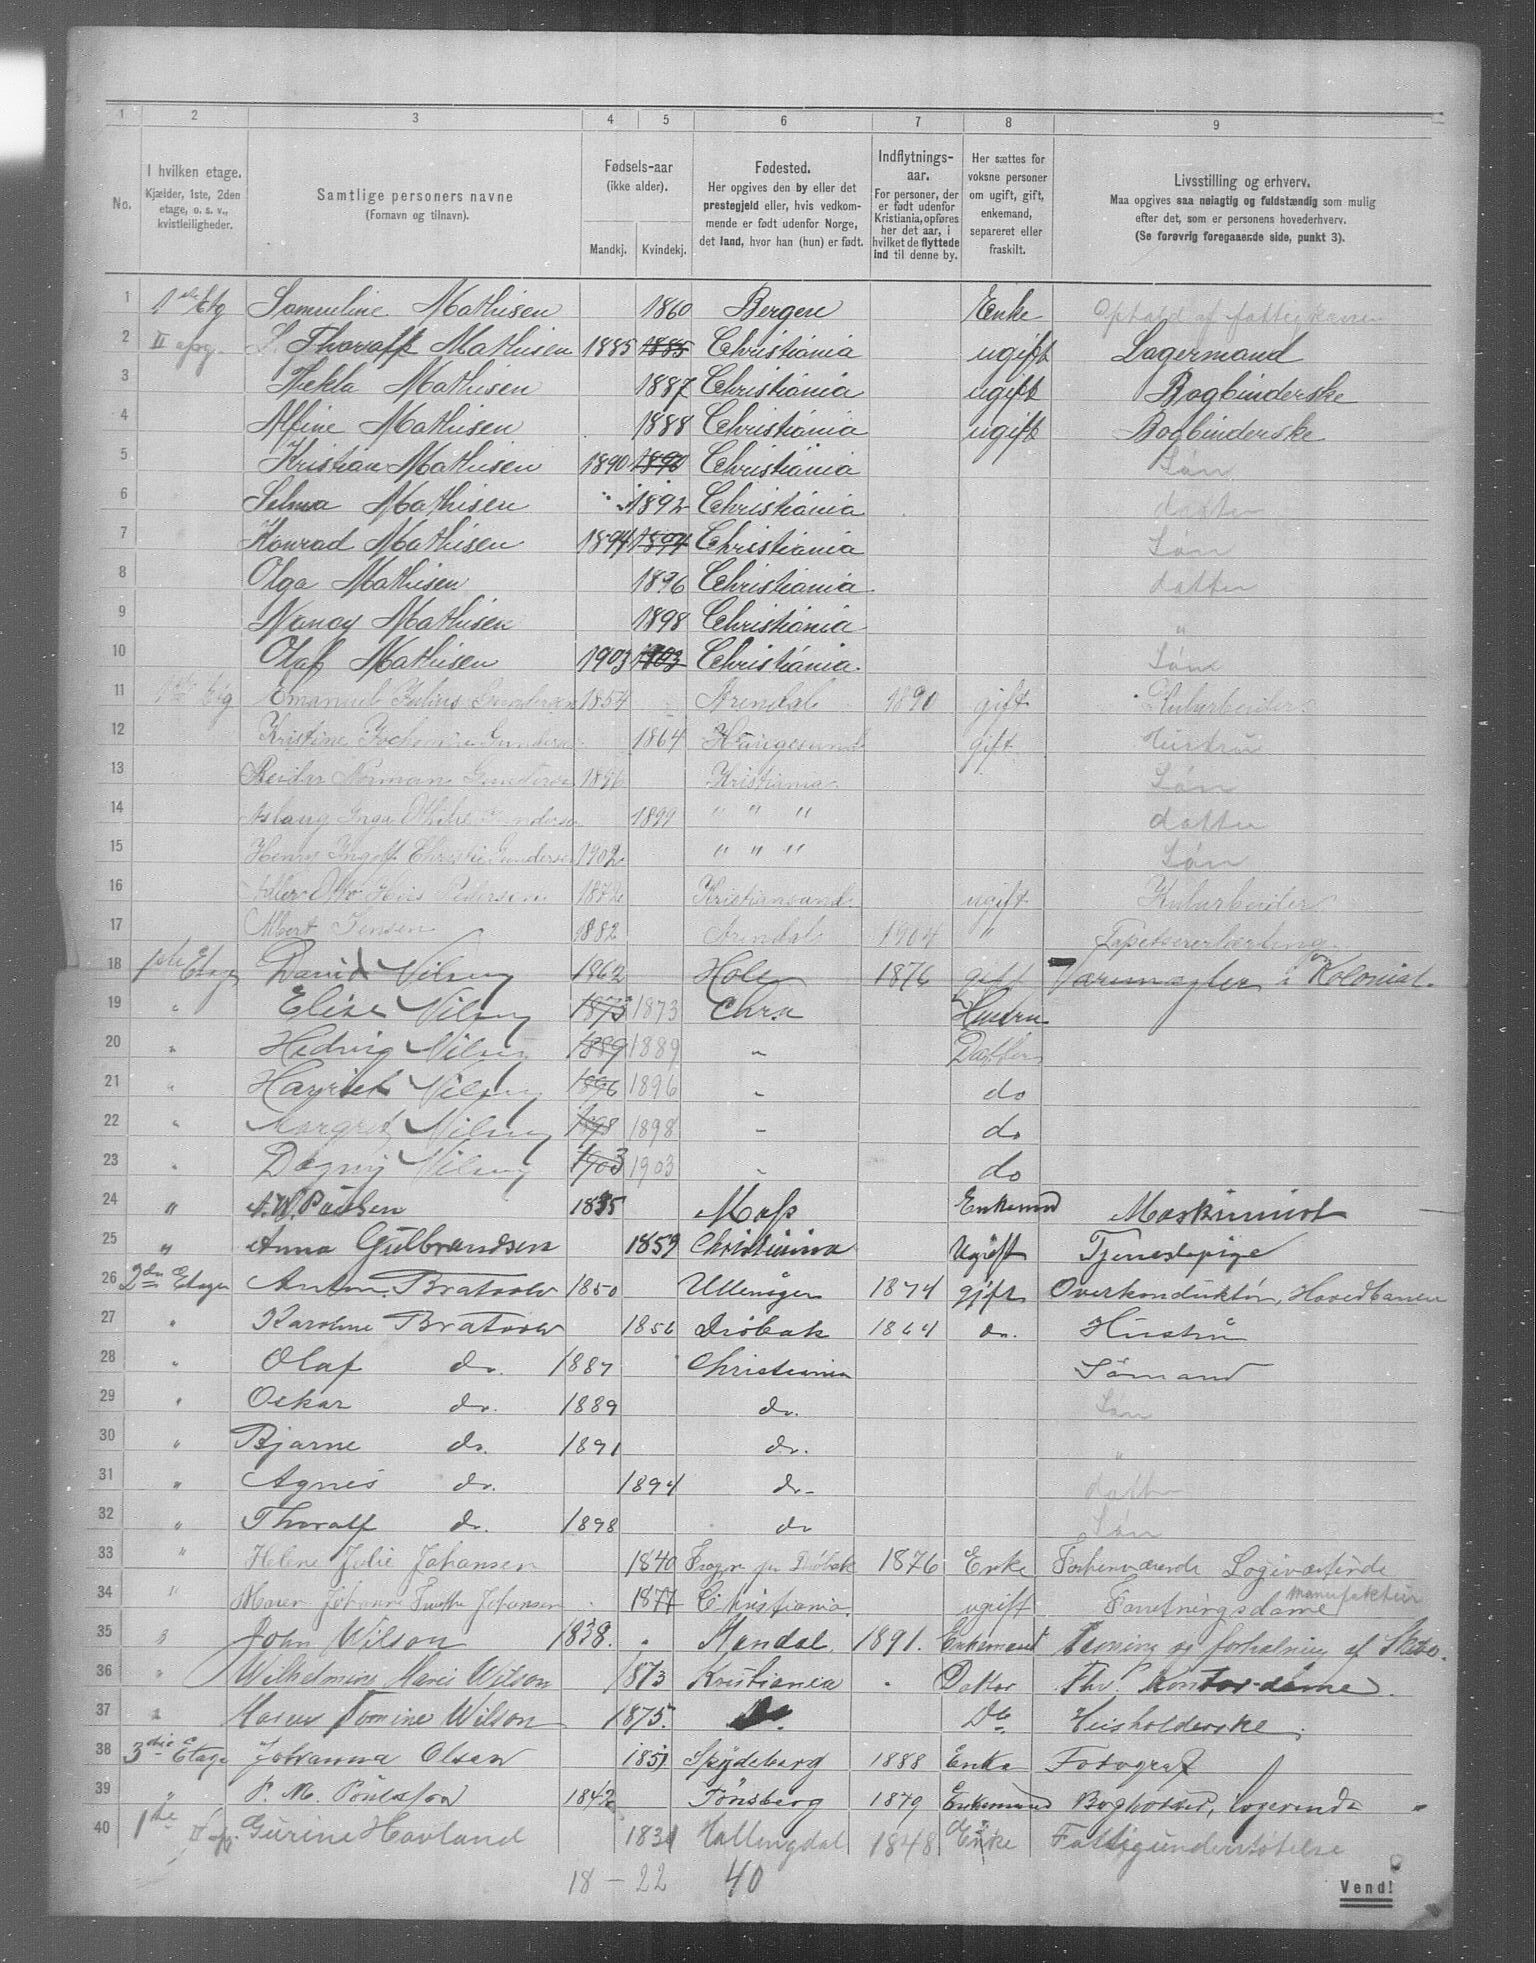 1 2 3 4 5 6 7 8 9
No. I hvilken etage. Kjælder, 1ste, 2den etage, o. s. v., kvistleiligheder. Samtlige personers navne (Fornavn og tilnavn). Fødsels-aar (ikke alder). Mandkj. Kvindekj. Fødested. Her opgives den by eller det prestegjeld eller, hvis vedkommende er født udenfor Norge, det land, hvor han (hun) er født. Indflytnings-aar. For personer, der er født udenfor Kristiania, opføres her det aar, i hvilket de flyttede ind til denne by. Her sættes for voksne personer om ugift, gift, enkemand, separeret eller fraskilt. Livsstilling og erhverv. Maa opgives saa nøiagtig og fuldstændig som mulig efter det, som er personens hovederhverv. (Se forøvrig foregaaende side, punkt 3).
1 1ste Etg Samuline Mathisen 1860 Bergen Enke Ophold af
2 II opg. Thoralf Mathisen 1885 1885 Christiania ugift Lagermand
3 Thekla Mathisen 1887 Christiania ugift Bogbinderske
4 Alfine Mathisen 1888 Christiania ugift Bogbinderske
5 Kristian Mathisen 1890 1890 Christiania Søn
6 Selma Mathisen 1892 Christiania datter
7 Konrad Mathisen 1894 1894 Christiania Søn
8 Olga Mathisen 1896 Christiania datter
9 Nancy Mathisen 1898 Christiania "
10 Olaf Mathisen 1903 1903 Christiania. Søn
11 1ste Etg Emanuel Julius Gundersen 1854 Arendal 1890 gift
12 Kristine Gundersen 1864 Haugesund gift Hustru
13 Reidar Norman Gundersen 1896 Kristiania Søn
14 Aslaug Inga Gundersen 1899 " " " datter
15 Henry Ingolf Christie Gundersen 1902 " " " Søn
16 Otto Pedersen 1872 Kristiansand ugift
17 Albert Jensen 1882 Arendal 1904 " Tapetsererlærling
18 1ste Etage David 1862 Hole 1876 gift Kolonial.
19 " Elise 1873 1873 Chra Hustru
20 " Hedvig 1889 1889 " Datter
21 " 1896 1896 " do
22 " Margret 1898 1898 " do
23 " Dagny 1903 1903 " do
24 " A. W. Paulsen 1835 Moss Enkemand Maskinist
25 " Anna Gulbrandsen 1859 Christiania Ugift Tjenestepige
26 2den Etage Anton 1850 Ullensager 1874 gift Overkonduktør, Hovedbanen
27 " Karoline 1856 Drøbak 1864 do. Hustru
28 " Olaf do. 1887 Christiania Sømand
29 " Oskar do. 1889 do. Søn
30 " Bjarne do. 1891 do. "
31 " Agnes do. 1894 do. datter
32 " Thoralf do. 1898 do Søn
33 " Helene Julie Johansen 1840 Drøbak 1876 Enke Forhenværende Logivertinde
34 " Maren Johanne Johansen 1877 Christiania. ugift Forretningsdame manufaktur
35 " John Wilson 1838. Mandal 1891. Enkemand og forhaling af Skibe.
36 " Wilhelmine Marie Wilson 1873 Kristiania Datter Kontordame.
37 " Maren Tomine Wilson 1875. Do. Do Husholderske.
38 3die Etage Johanna Olsen 1851 Spydeberg 1888 Enke Fotograf
39 " P. M. 1842 Tønsberg 1879 Enkemand Bogholder, logerende "
40 1ste II opg. Gurine Havland 1831 Hallingdal 1848 Enke Fattigunderstøtelse
18 – 22 40
Vend!